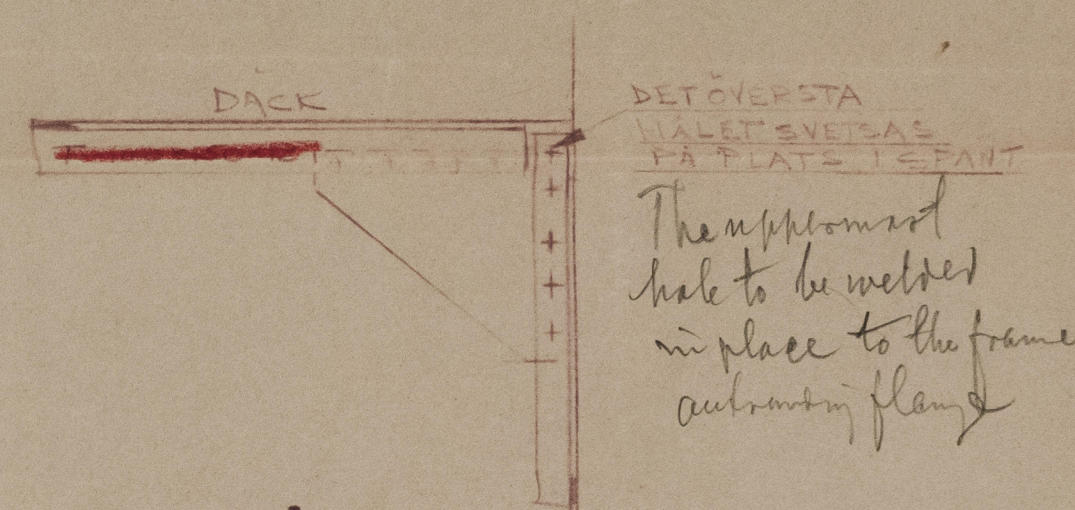 DÄCK
DET ÖVERSTA
HÅLET SVETSAS
PÅ PLATS I SPANT
The uppermost
hole to be welded
in place to the frame
flange